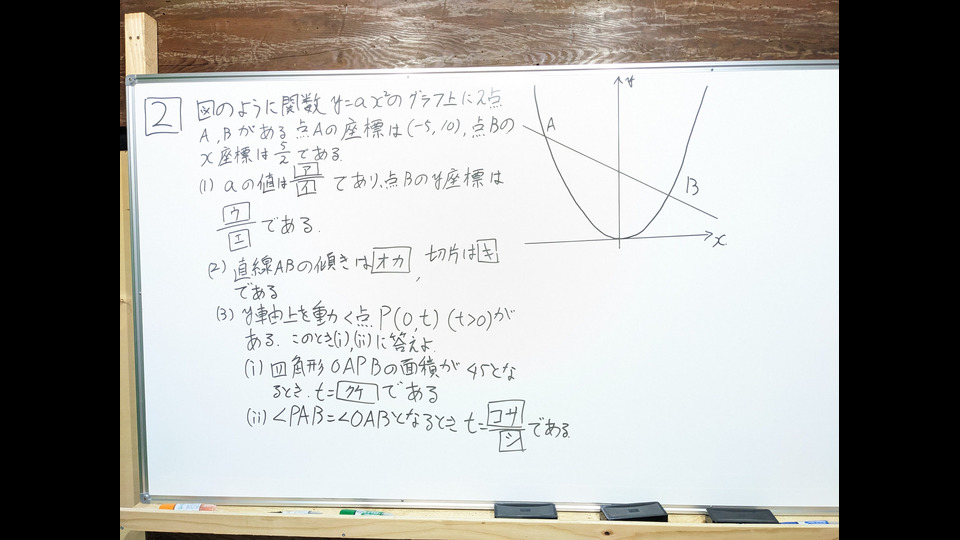 2
図のように関数 y=ax²のグラフ上に2点
A,Bがある 点Aの座標は(-5,10),点Bの
x座標は5/2である.
(1) aの値はア/イ であり,点Bのy座標は
ウ/エ である.
(2) 直線ABの傾きは オカ , 切片は キ
である
(3) y軸上を動く点P(0,t) (t>0)が
ある. このとき(i),(ii)に答えよ.
(i) 四角形OAPBの面積が 45とな
るとき. t= クケ である
(ii) ∠PAB=∠OABとなるとき t= コサ/シ である.
y
A
B
x